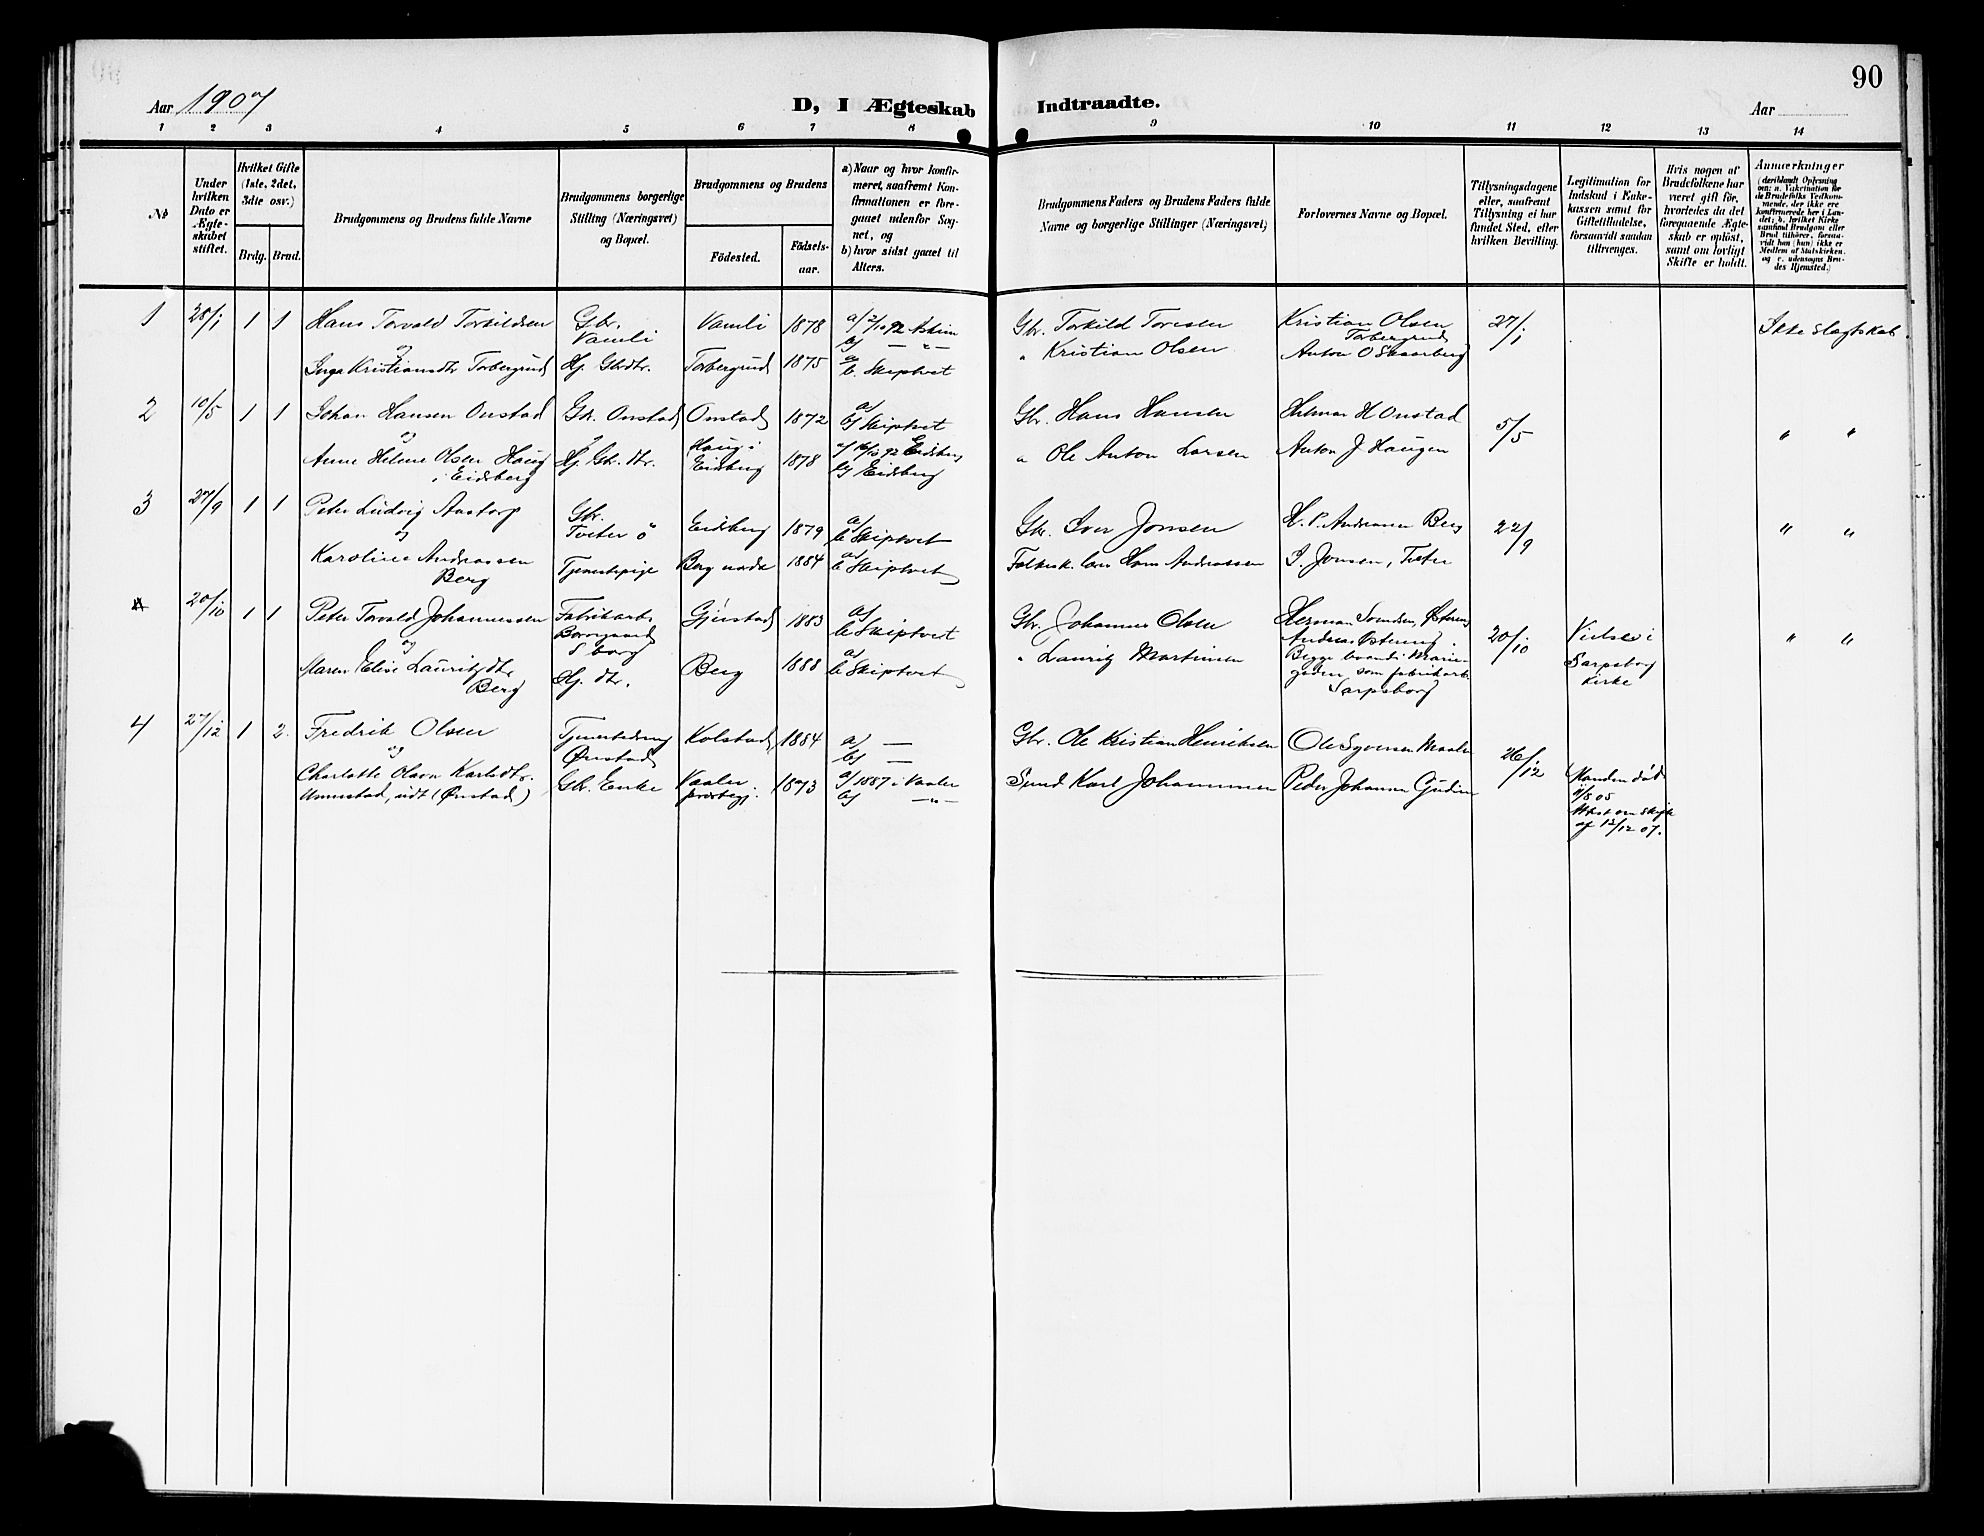 90
Aar 1907
D, I Ægteskab Indtraadte.
Aar
1 2 3 4 5 6 7 8 9 10 11 12 13 14
No
Under hvilken Dato er Ægteskabet stiftet.
Hvilket Gifte (1ste, 2det, 3die osv.)
Brdg. Brud.
Brudgommens og Brudens fulde Navne
Brudgommens borgerlige Stilling (Næringsvei) og Bopæl.
Brudgommens og Brudens
Födested.
Födselsaar.
a) Naar og hvor konfirmeret, saafremt Konfirmationen er foregaaet udenfor Sognet, og
b) hvor sidst gaaet til Alters.
Brudgommens Faders og Brudens Faders fulde Navne og borgerlige Stillinger (Næringsvei)
Forlovernes Navne og Bopæl.
Tillysningsdagene eller, saafremt Tillysning ei har fundet Sted, efter hvilken Bevilling.
Legitimation for Indskud i Enkekassen samt for Giftetilladelse, forsaavidt saadan tiltrænges.
Hvis nogen af Brudefolkene har været gift för, hvorledes da det foregaaende Ægteskab er oplöst, samt om lovligt Skifte er holdt.
Anmærkninger
(deriblandt Oplysning om: a. Vakcination for de Brudefolks Vedkommende, der ikke ere konfirmerede her i Landet; b. hvilket Kirkesamfund Brudgom eller Brud tilhörer, forsaavidt han (hun) ikke er Medlem af Statskirken, og c. udensogns Brudes Hjemsted.)
1 28/1 1 1 Hans Torvald Torkildsen Gbr. Vamli Vamli 1878 a/ 2/10 92 Askim b/ — " — Gbr. Torkild Toresen Kristian Olsen Torbergrud 27/1 Ikke slægtskab.
og
Inga Kristiansdtr Torbergrud Hj. Gbrdtr. Torbergrud 1875 a b. Skiptvet " Kristian Olsen Anton O
2 10/5 1 1 Johan Hansen Onstad Gbr. Onstad Onstad 1872 a/ b/ Skiptvet Gbr. Hans Hansen Helmer H Onstad 5/5 " "
og
Anne Helene Olsen Haug i Eidsberg Hj. Gbr. dtr. Haug i Eidsberg 1878 a/ 92 Eidsberg b/ Eidsberg " Ole Anton Larsen Anton J Haugen
3 27/9 1 1 Peter Ludvig Aastorp Gbr. Tveter ö Eidsberg 1879 a/ b Skiptvet Gbr. Iver Jonsen H. P. Andreasen Berg 22/9 " "
og
Karoline Andreassen Berg Tjenestepige Berg nedre 1884 a/ b Skiptvet Hans Andreassen I. Jonsen, Tveter
4 20/10 1 1 Peter Torvald Johannessen Fabrikarb. Borregaard S borg Gjerstad 1883 a/ b Skiptvet Gbr. Johannes Olsen Herman 20/10 Vielse i Sarpsborg Kirke " "
og
Maren Elise Lauritzdtr Berg Hj. dtr. Berg 1888 a/ b Skiptvet " Lauritz Martinsen Andreas Østereng Begge boende i som fabrikarb. Sarpsborg
4 27/12 1 2. Fredrik Olsen Ønstad Kolstad 1884 a/ — b/ — Gbr. Ole Kristian Henriksen Ole Syversen 26/12
og
Charlotte Olava Karlsdtr. (Ønstad) Gbr. Enke Vaaler 1873 a/ 1887 i Vaaler b/ — " — Karl Johannessen Peder Johansen Manden död 05
af 12/12 07.